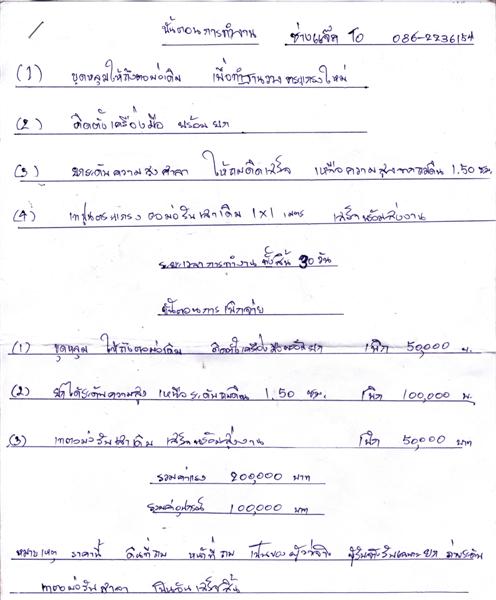 ขั้นตอนการทำงาน ช่างแจ็ค โบ 086-2236154
(1) ขุดหลุมให้ถึงตอม่อเดิม เพื่อทำฐานวางตะแกรงใหม่
(2) ติดตั้งเครื่องมือ พร้อมยก
(3) ยกระดับความสูงศาลา ให้ถมดินเสร็จ เหนือความสูงจากถมดิน 1.50 ซม.
(4) เทปูนตะแกรง ตอม่อรับเสาเดิม 1x1 เมตร เสร็จพร้อมส่งงาน
ระยะเวลาการทำงาน ทั้งสิ้น 30 วัน
ขั้นตอนการเบิกจ่าย
(1) ขุดหลุม ให้ถึงตอม่อเดิม ติดตั้งเครื่องมือพร้อมยก เบิก 50,000 บ.
(2) ยกได้ระดับความสูง เหนือระดับถมดิน 1.50 ซม. เบิก 100,000 บ.
(3) เทตอม่อรับเสาเดิม เสร็จพร้อมส่งงาน เบิก 50,000 บาท
รวมค่าแรง 200,000 บาท
รวมค่าอุปกรณ์ 100,000 บาท
หมายเหตุ ราคานี้ ดินที่ถม หน้าที่ถม เป็นของผู้ว่าจ้าง ผู้รับจ้างรับเฉพาะยก
เทตอม่อรับศาลา เป็นอันเสร็จสิ้น